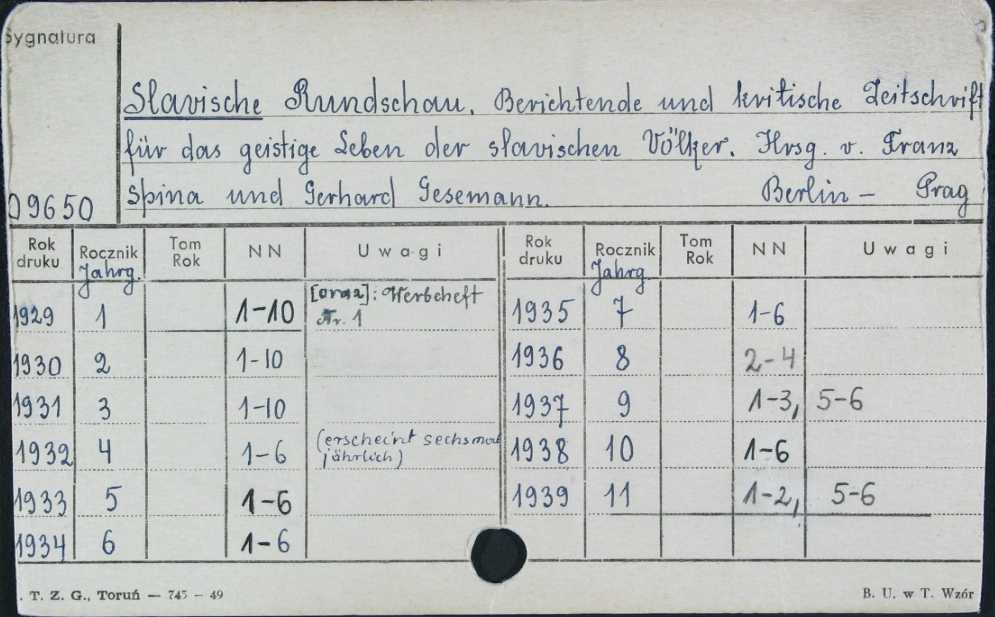 Sygnatura
Slavische Rundschau. Berichtende und kritische Zeitschrift
für das geistige Leben der slavischen Völker. Hrsg. v. Franz
09650 Spina und Gerhard Gesemann. Berlin – Prag
Rok druku Rocznik Jahrg. Tom Rok NN Uwagi Rok druku Rocznik Jahrg. Tom Rok NN Uwagi
1929 1 1-10 [oraz]: Werbeheft Nr. 1 1935 7 1-6
1930 2 1-10 1936 8 2-4
1931 3 1-10 1937 9 1-3, 5-6
1932 4 1-6 (erscheint sechsmal jährlich) 1938 10 1-6
1933 5 1-6 1939 11 1-2, 5-6
1934 6 1-6
. T. Z. G., Toruń — 745 – 49 B. U. w T. Wzór